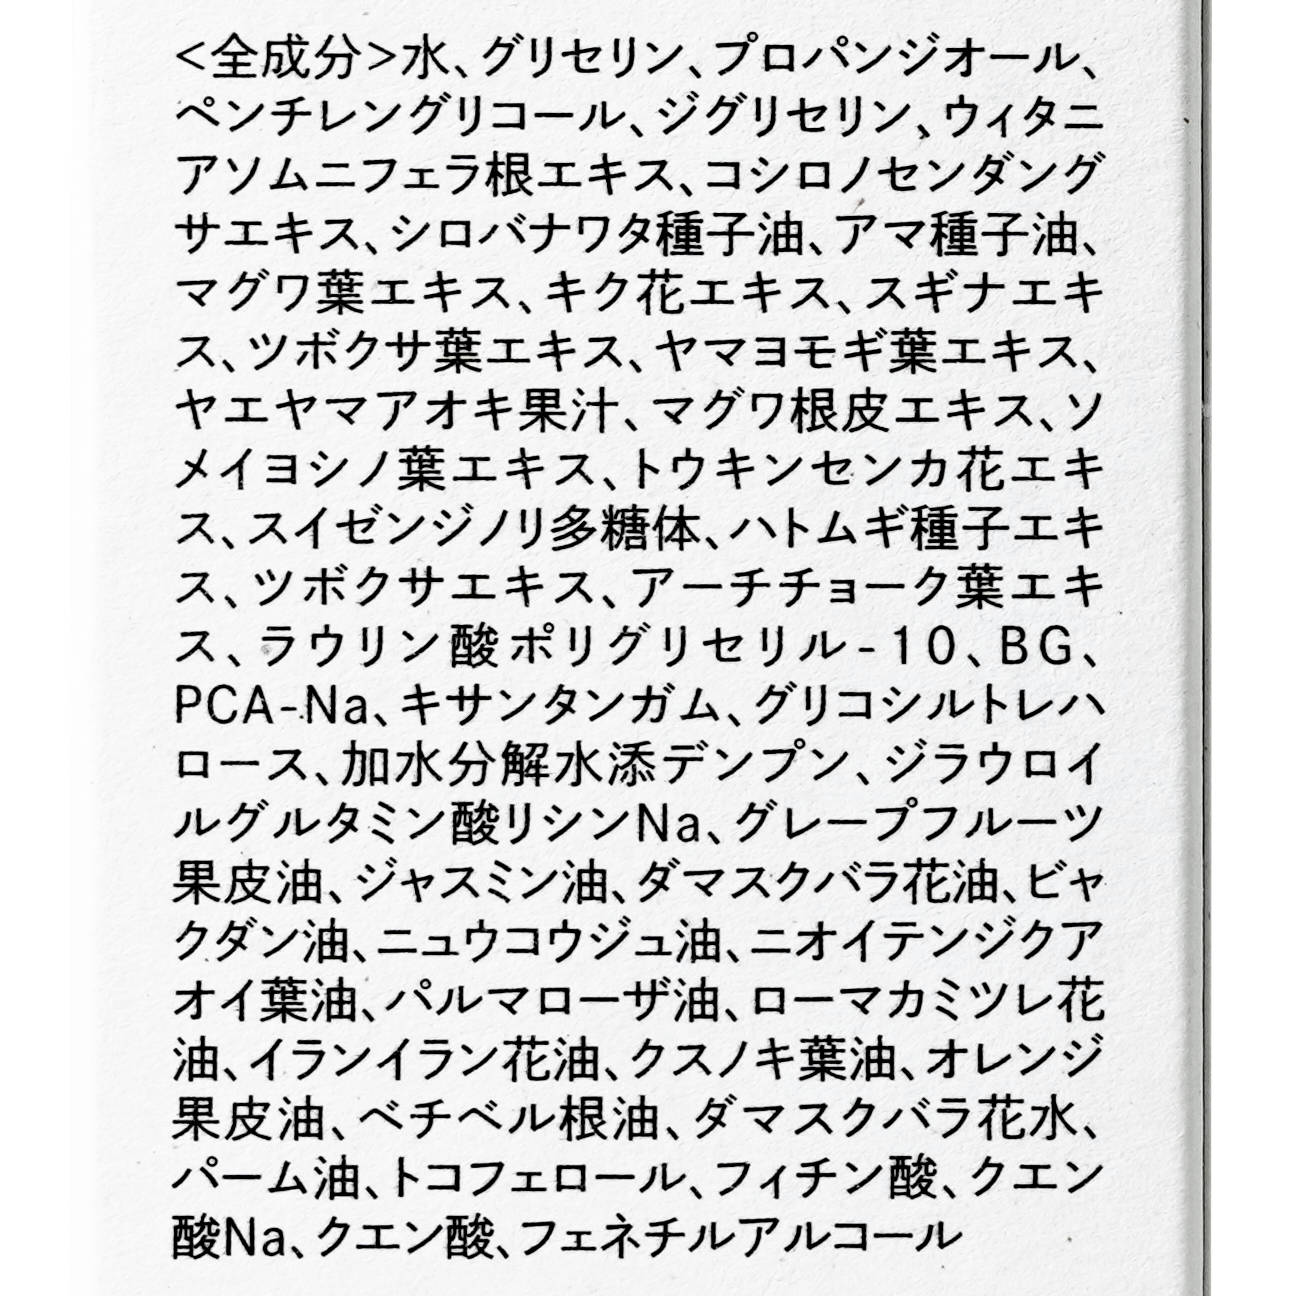 <全成分>水、グリセリン、プロパンジオール、
ペンチレングリコール、ジグリセリン、ウィタニ
アソムニフェラ根エキス、コシロノセンダング
サエキス、シロバナワタ種子油、アマ種子油、
マグワ葉エキス、キク花エキス、スギナエキ
ス、ツボクサ葉エキス、ヤマヨモギ葉エキス、
ヤエヤマアオキ果汁、マグワ根皮エキス、ソ
メイヨシノ葉エキス、トウキンセンカ花エキ
ス、スイゼンジノリ多糖体、ハトムギ種子エキ
ス、ツボクサエキス、アーチチョーク葉エキ
ス、ラウリン酸ポリグリセリル-10、BG、
PCA-Na、キサンタンガム、グリコシルトレハ
ロース、加水分解水添デンプン、ジラウロイ
ルグルタミン酸リシンNa、グレープフルーツ
果皮油、ジャスミン油、ダマスクバラ花油、ビャ
クダン油、ニュウコウジュ油、ニオイテンジクア
オイ葉油、パルマローザ油、ローマカミツレ花
油、イランイラン花油、クスノキ葉油、オレンジ
果皮油、ベチベル根油、ダマスクバラ花水、
パーム油、トコフェロール、フィチン酸、クエン
酸Na、クエン酸、フェネチルアルコール